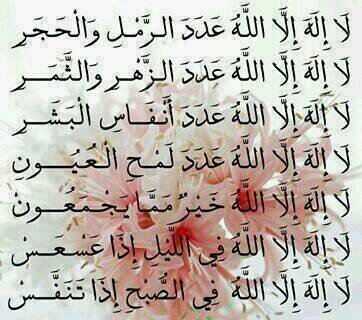 لَا إِلَهَ إِلَّا اللَّهُ عَدَدَ الرَّمْلِ وَالْحَجَرِ
لَا إِلَهَ إِلَّا اللَّهُ عَدَدَ الزَّهْرِ وَالثَّمَرِ
لَا إِلَهَ إِلَّا اللَّهُ عَدَدَ أَنْفَاسِ الْبَشَرِ
لَا إِلَهَ إِلَّا اللَّهُ عَدَدَ لَمْحِ الْعُيُونِ
لَا إِلَهَ إِلَّا اللَّهُ خَيْرٌ مِمَّا يَجْمَعُونْ
لَا إِلَهَ إِلَّا اللَّهُ فِي اللَّيْلِ إِذَا عَسْعَسْ
لَا إِلَهَ إِلَّا اللَّهُ فِي الصُّبْحِ إِذَا تَنَفَّسْ